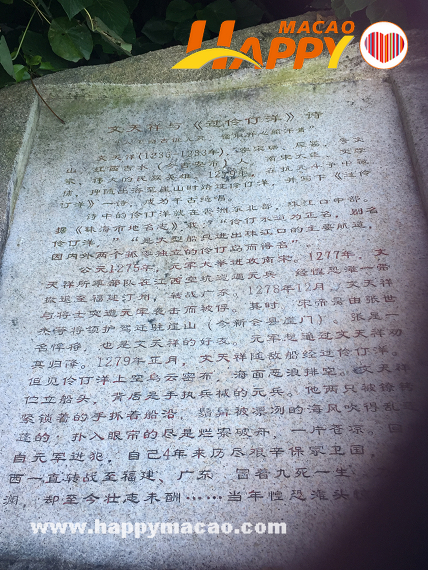 MACAO
HAPPY
文天祥与《过伶仃洋》诗
文天祥(1236-1283年),
山,江西吉水(
伟大的民族英雄。1279年,在抗元
押随出海至崖山时路过伶仃洋,并写下《过伶
仃洋》一诗,成为千古绝唱。
诗中的伶仃洋就在珠洲东北部,珠江口中部。
据《珠海市地名志》载:"伶仃水道为正名,别名
伶仃洋。" "是大型船舶进出珠江口的主要航道,
因内外两个孤零独立的伶仃岛而得名"
公元1275年,元军大举进攻南宋。1277年,文
天祥所率部队在江西空坑遭遇元兵
撤退至福建汀州,转战广东。1278年12月,文天祥
与将士突遭元军袭击而被俘。其时 宋帝昺由张世
杰等将领护驾迁驻崖山(今新会县崖门)
名悍将,也是文天祥的好友。元军想通过文天祥劝
其归降。1279年正月,文天祥随敌船经过伶仃洋。
但见伶仃洋上空乌云密布,海面恶浪排空。文天祥
伫立船头,背后是手执兵械的元兵。他两只被
紧锁着的手抓着船沿,鬍鬚被凛冽的海风吹得乱
蓬的;扑入眼帘的尽是烂寨破舟,一片苍凉。
自元军进犯,自己4年来历尽艰辛保家卫国,
西一直转战至福建、广东,冒着九死一生
却至今壮志未酬……当年惶恐滩头
www.happymacao.com